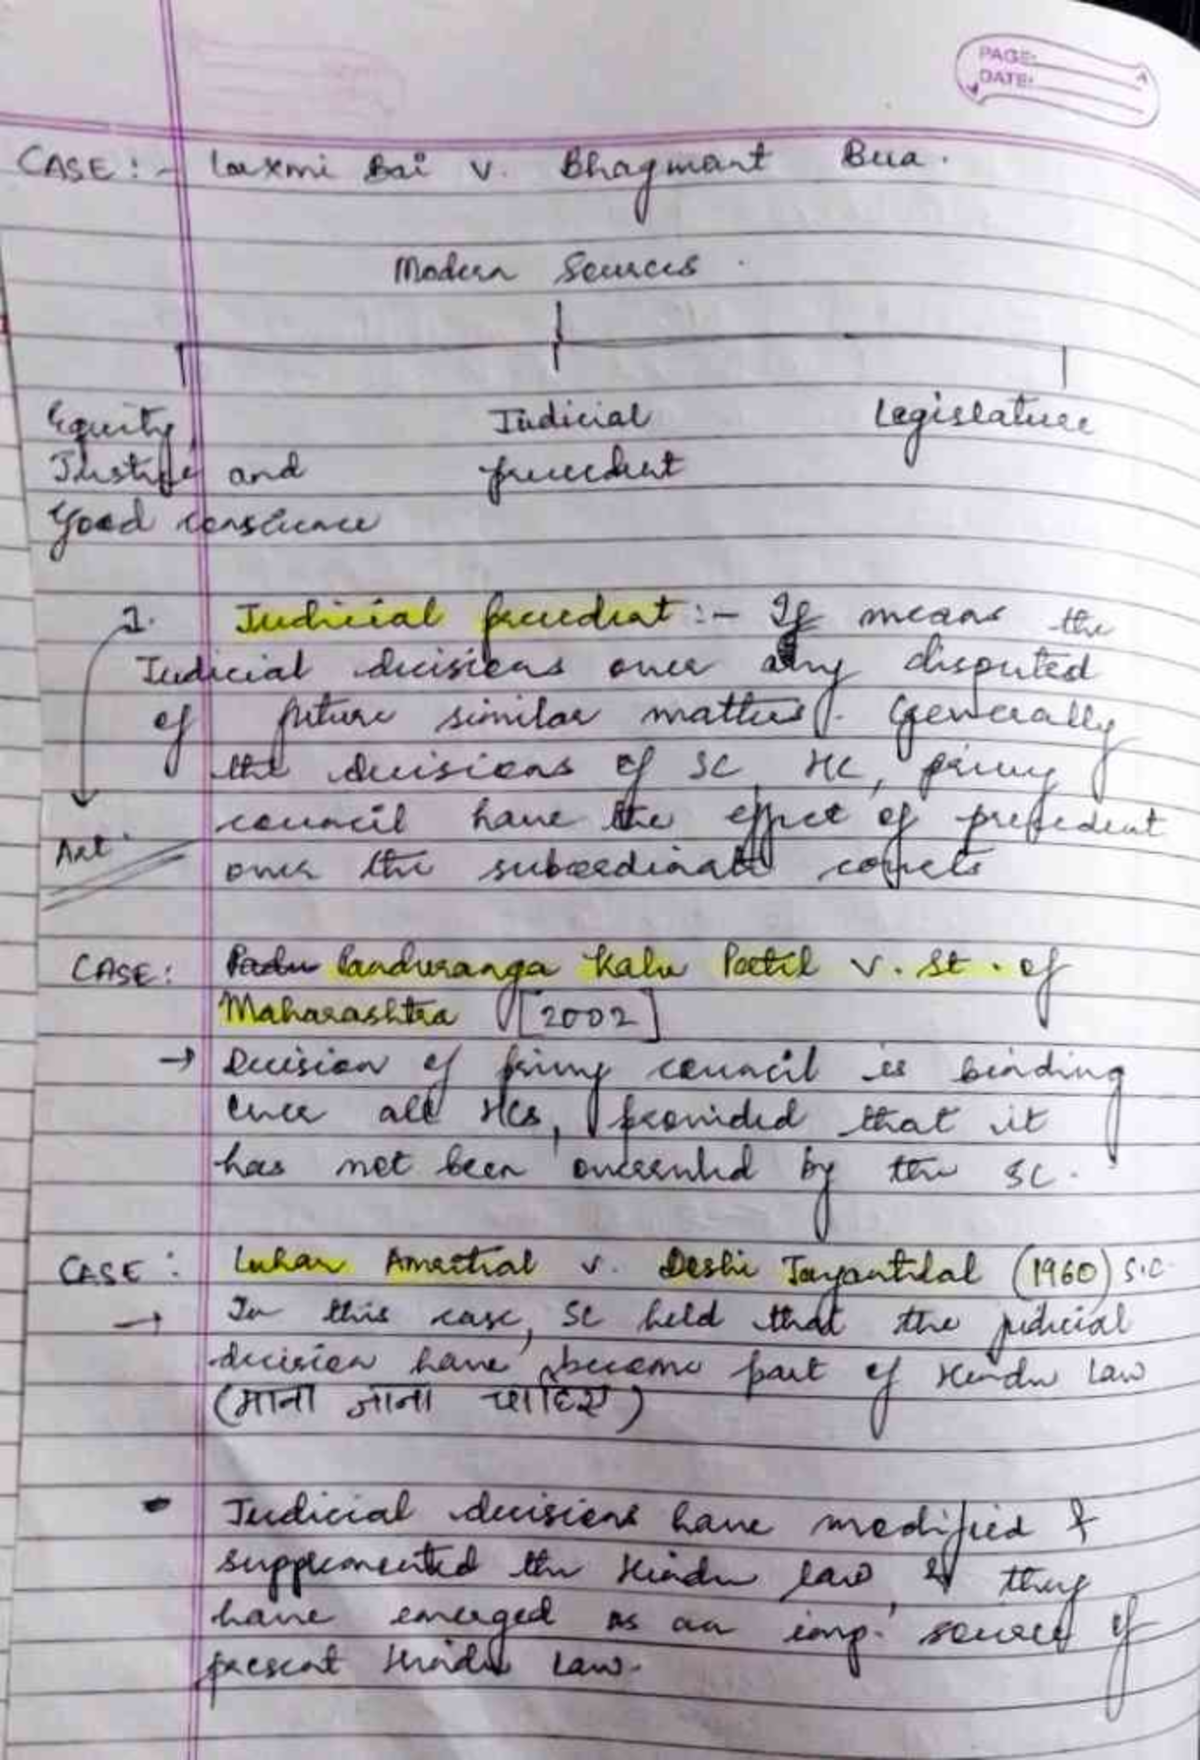 PAGE:
DATE:
CASE:- Laxmi Bai v. Bhagmant Bua.
Modern Sources.
Equity Judicial Legislature
Justice and precedent
Good conscience
1. Judicial precedent:- It means the
Judicial decisions over any disputed
of future similar matters. Generally
the decisions of SC, HC, privy
Art. council have the effect of precedent
over the subordinate courts
CASE: Padu Panduranga Kalu Patil v. St. of
Maharashtra [2002]
→ Decision of privy council is binding
over all HCs, provided that it
has not been overruled by the SC.
CASE: Luhar Amritlal v. Doshi Jayantilal (1960) S.C.
→ In this case, SC held that the judicial
decision have become part of Hindu Law
(माना जाना चाहिए)
• Judicial decisions have modified &
supplemented the Hindu law, & they
have emerged as an imp. source of
present Hindu Law.